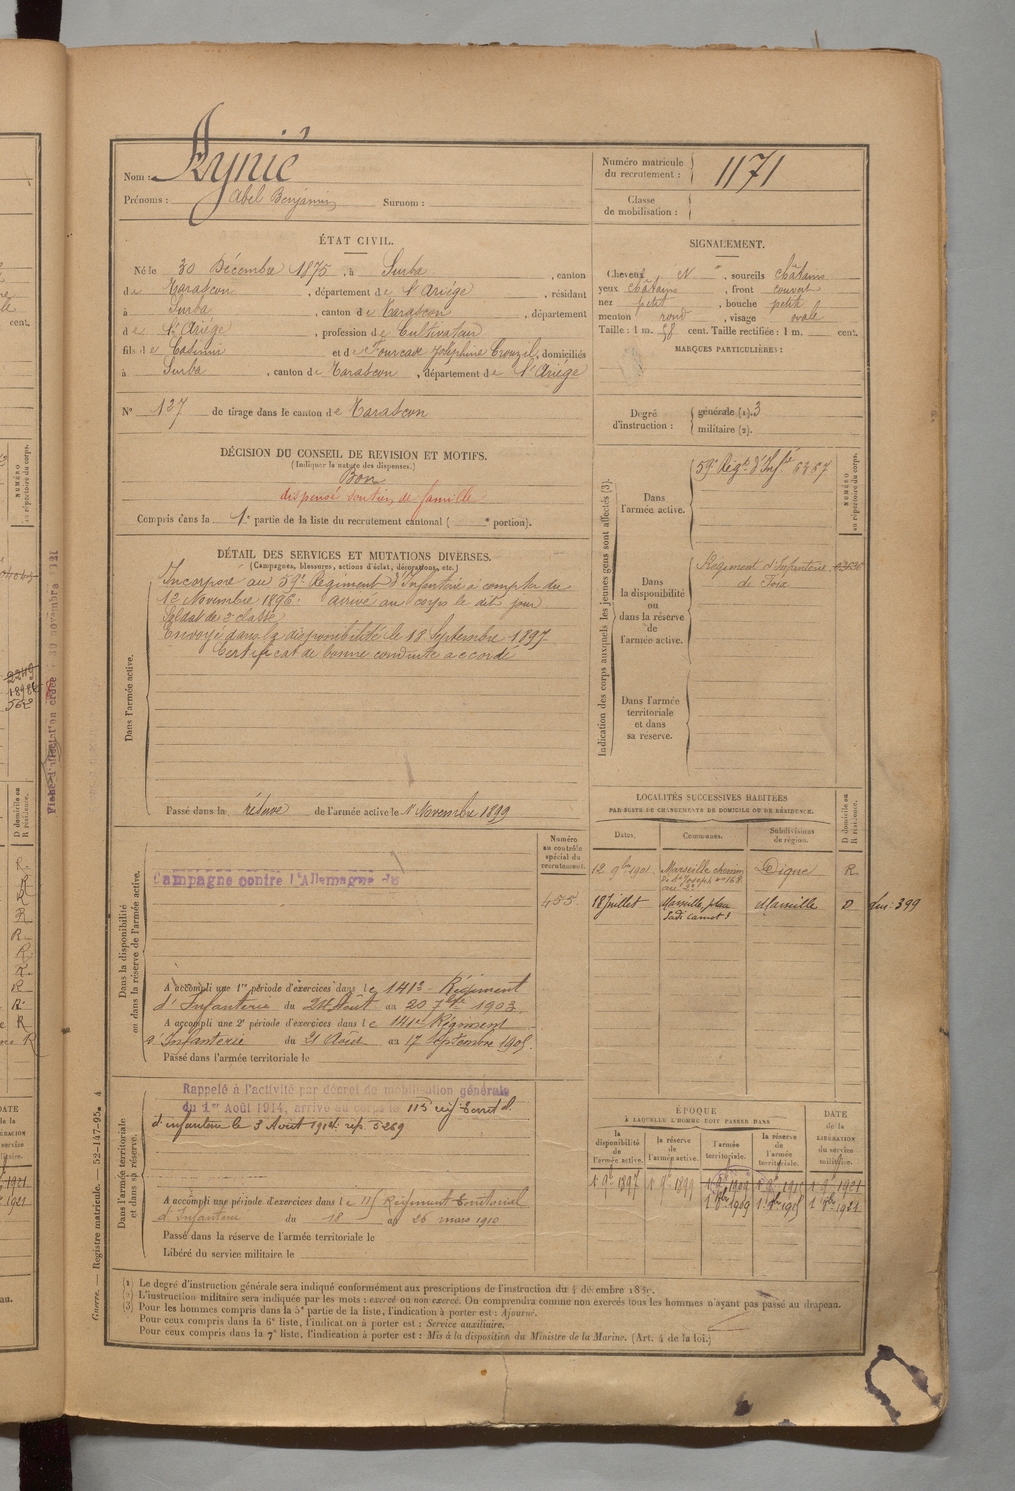 Nom : Aynié
Prénoms : Abel Benjamin Surnom :
Numéro matricule du recrutement : 1171
Classe de mobilisation :
ÉTAT CIVIL.
Né le 30 Décembre 1875, à Surba, canton
de Tarascon, département de l'Ariége, résidant
à Surba, canton de Tarascon, département
de l'Ariége, profession de Cultivateur
fils de Casimir et de Fourcade Joséphine Crouzil, domiciliés
à Surba, canton de Tarascon, département de l'Ariége
N° 137 de tirage dans le canton de Tarascon
SIGNALEMENT.
Cheveux N, sourcils châtains
yeux châtains, front couvert
nez petit, bouche petite
menton rond, visage ovale
Taille : 1 m. 58 cent. Taille rectifiée : 1 m. cent.
MARQUES PARTICULIÈRES :
Degré d'instruction : générale (1). 3
militaire (2).
DÉCISION DU CONSEIL DE REVISION ET MOTIFS.
(Indiquer la nature des dispenses.)
Bon
dispensé soutien de famille
Compris dans la 1e partie de la liste du recrutement cantonal ( e portion).
DÉTAIL DES SERVICES ET MUTATIONS DIVERSES.
(Campagnes, blessures, actions d'éclat, décorations, etc.)
Dans l'armée active.
Incorporé au 59e Régiment d'Infanterie à compter du
12 Novembre 1896. arrivé au corps le dit jour
Soldat de 2e classe
Envoyé dans la disponibilité le 18 Septembre 1897
Certificat de bonne conduite accordé
Passé dans la réserve de l'armée active le 1er Novembre 1899
Indication des corps auxquels les jeunes gens sont affectés (3).
NUMÉRO au répertoire du corps.
Dans l'armée active.
59e Régt d'Infie 6367
Dans la disponibilité ou dans la réserve de l'armée active.
Régiment d'Infanterie
de Foix
Dans l'armée territoriale et dans sa réserve.
LOCALITÉS SUCCESSIVES HABITÉES
PAR SUITE DE CHANGEMENTS DE DOMICILE OU DE RÉSIDENCE.
Dates. Communes. Subdivisions de région. D domicile ou R résidence.
12 9bre 1901 Marseille chemin Digne R.
de St Joseph n° 168
18 Juillet Marseille, place Marseille D
Sadi Carnot
Numéro au contrôle spécial du recrutement.
455
Dans la disponibilité ou dans la réserve de l'armée active.
Campagne contre l'Allemagne du
A accompli une 1re période d'exercices dans le 141e Régiment
d'Infanterie du 24 Août au 20 7bre 1903.
A accompli une 2e période d'exercices dans le 141e Régiment
d'Infanterie du 21 Août au 17 Septembre 1905.
Passé dans l'armée territoriale le
Dans l'armée territoriale et dans sa réserve.
Rappelé à l'activité par décret de mobilisation générale
du 1er Août 1914, arrivé au corps le 115e rég. territ. al
d'infanterie le 3 Août 1914. rép. 5269
A accompli une période d'exercices dans le 115 Régiment Territorial
d'Infanterie du 18 au 26 mars 1910
Passé dans la réserve de l'armée territoriale le
Libéré du service militaire le
ÉPOQUE
À LAQUELLE L'HOMME DOIT PASSER DANS
la disponibilité de l'armée active. la réserve de l'armée active. l'armée territoriale. la réserve de l'armée territoriale.
DATE de la LIBÉRATION du service militaire.
1 9bre 1897 1 9bre 1899 1 9bre 1909 1 9bre 1915 1 9bre 1921
(1) Le degré d'instruction générale sera indiqué conformément aux prescriptions de l'instruction du 4 décembre 1889.
(2) L'instruction militaire sera indiquée par les mots : exercé ou non exercé. On comprendra comme non exercés tous les hommes n'ayant pas passé au drapeau.
(3) Pour les hommes compris dans la 5e partie de la liste, l'indication à porter est : Ajourné.
Pour ceux compris dans la 6e liste, l'indication à porter est : Service auxiliaire.
Pour ceux compris dans la 7e liste, l'indication à porter est : Mis à la disposition du Ministre de la Marine. (Art. 4 de la loi.)
Guerre. — Registre matricule. 52-147-95. 4